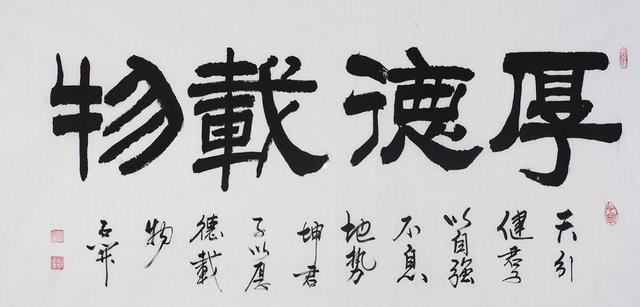 厚德載物
天行
健君子
以自强
不息
地势
坤君
子以厚
德載
物